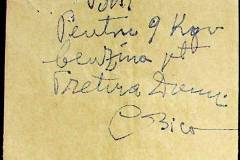 Bon
Pentru 9 Kgr
benzina pt
Pretura Dom
C Bico